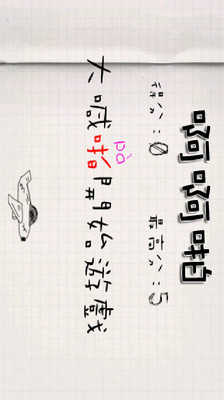 啊啊啪
得分:0 最高分:5
pà
大喊啪開始遊戲